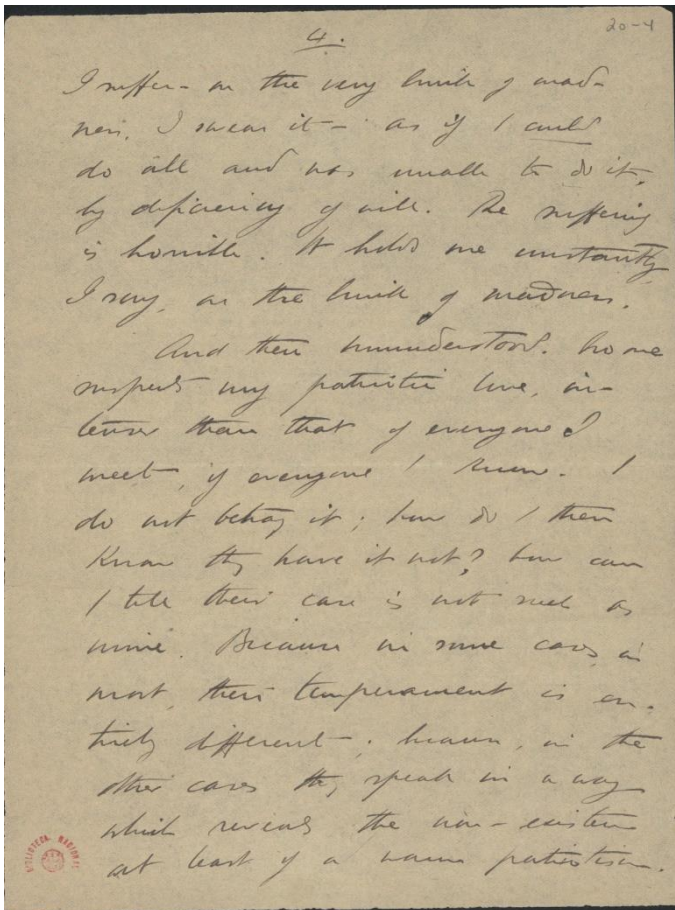 20-4
4.
I suffer - on the very limit of mad-
ness, I swear it - as if I could
do all and was unable to do it,
by deficiency of will. The suffering
is horrible. It holds me constantly,
I say, on the limit of madness.
And then misunderstood. No one
suspects my patriotic love, in-
tenser than that of everyone I
meet, of everyone I know. I
do not betray it; how do I then
know they have it not? how can
I tell their case is not such as
mine. Because in some cases, in
most, their temperament is en-
tirely different; because, in the
other cases they speak in a way
which reveals the non-existence
at least of a warm patriotism.
BIBLIOTECA NACIONAL